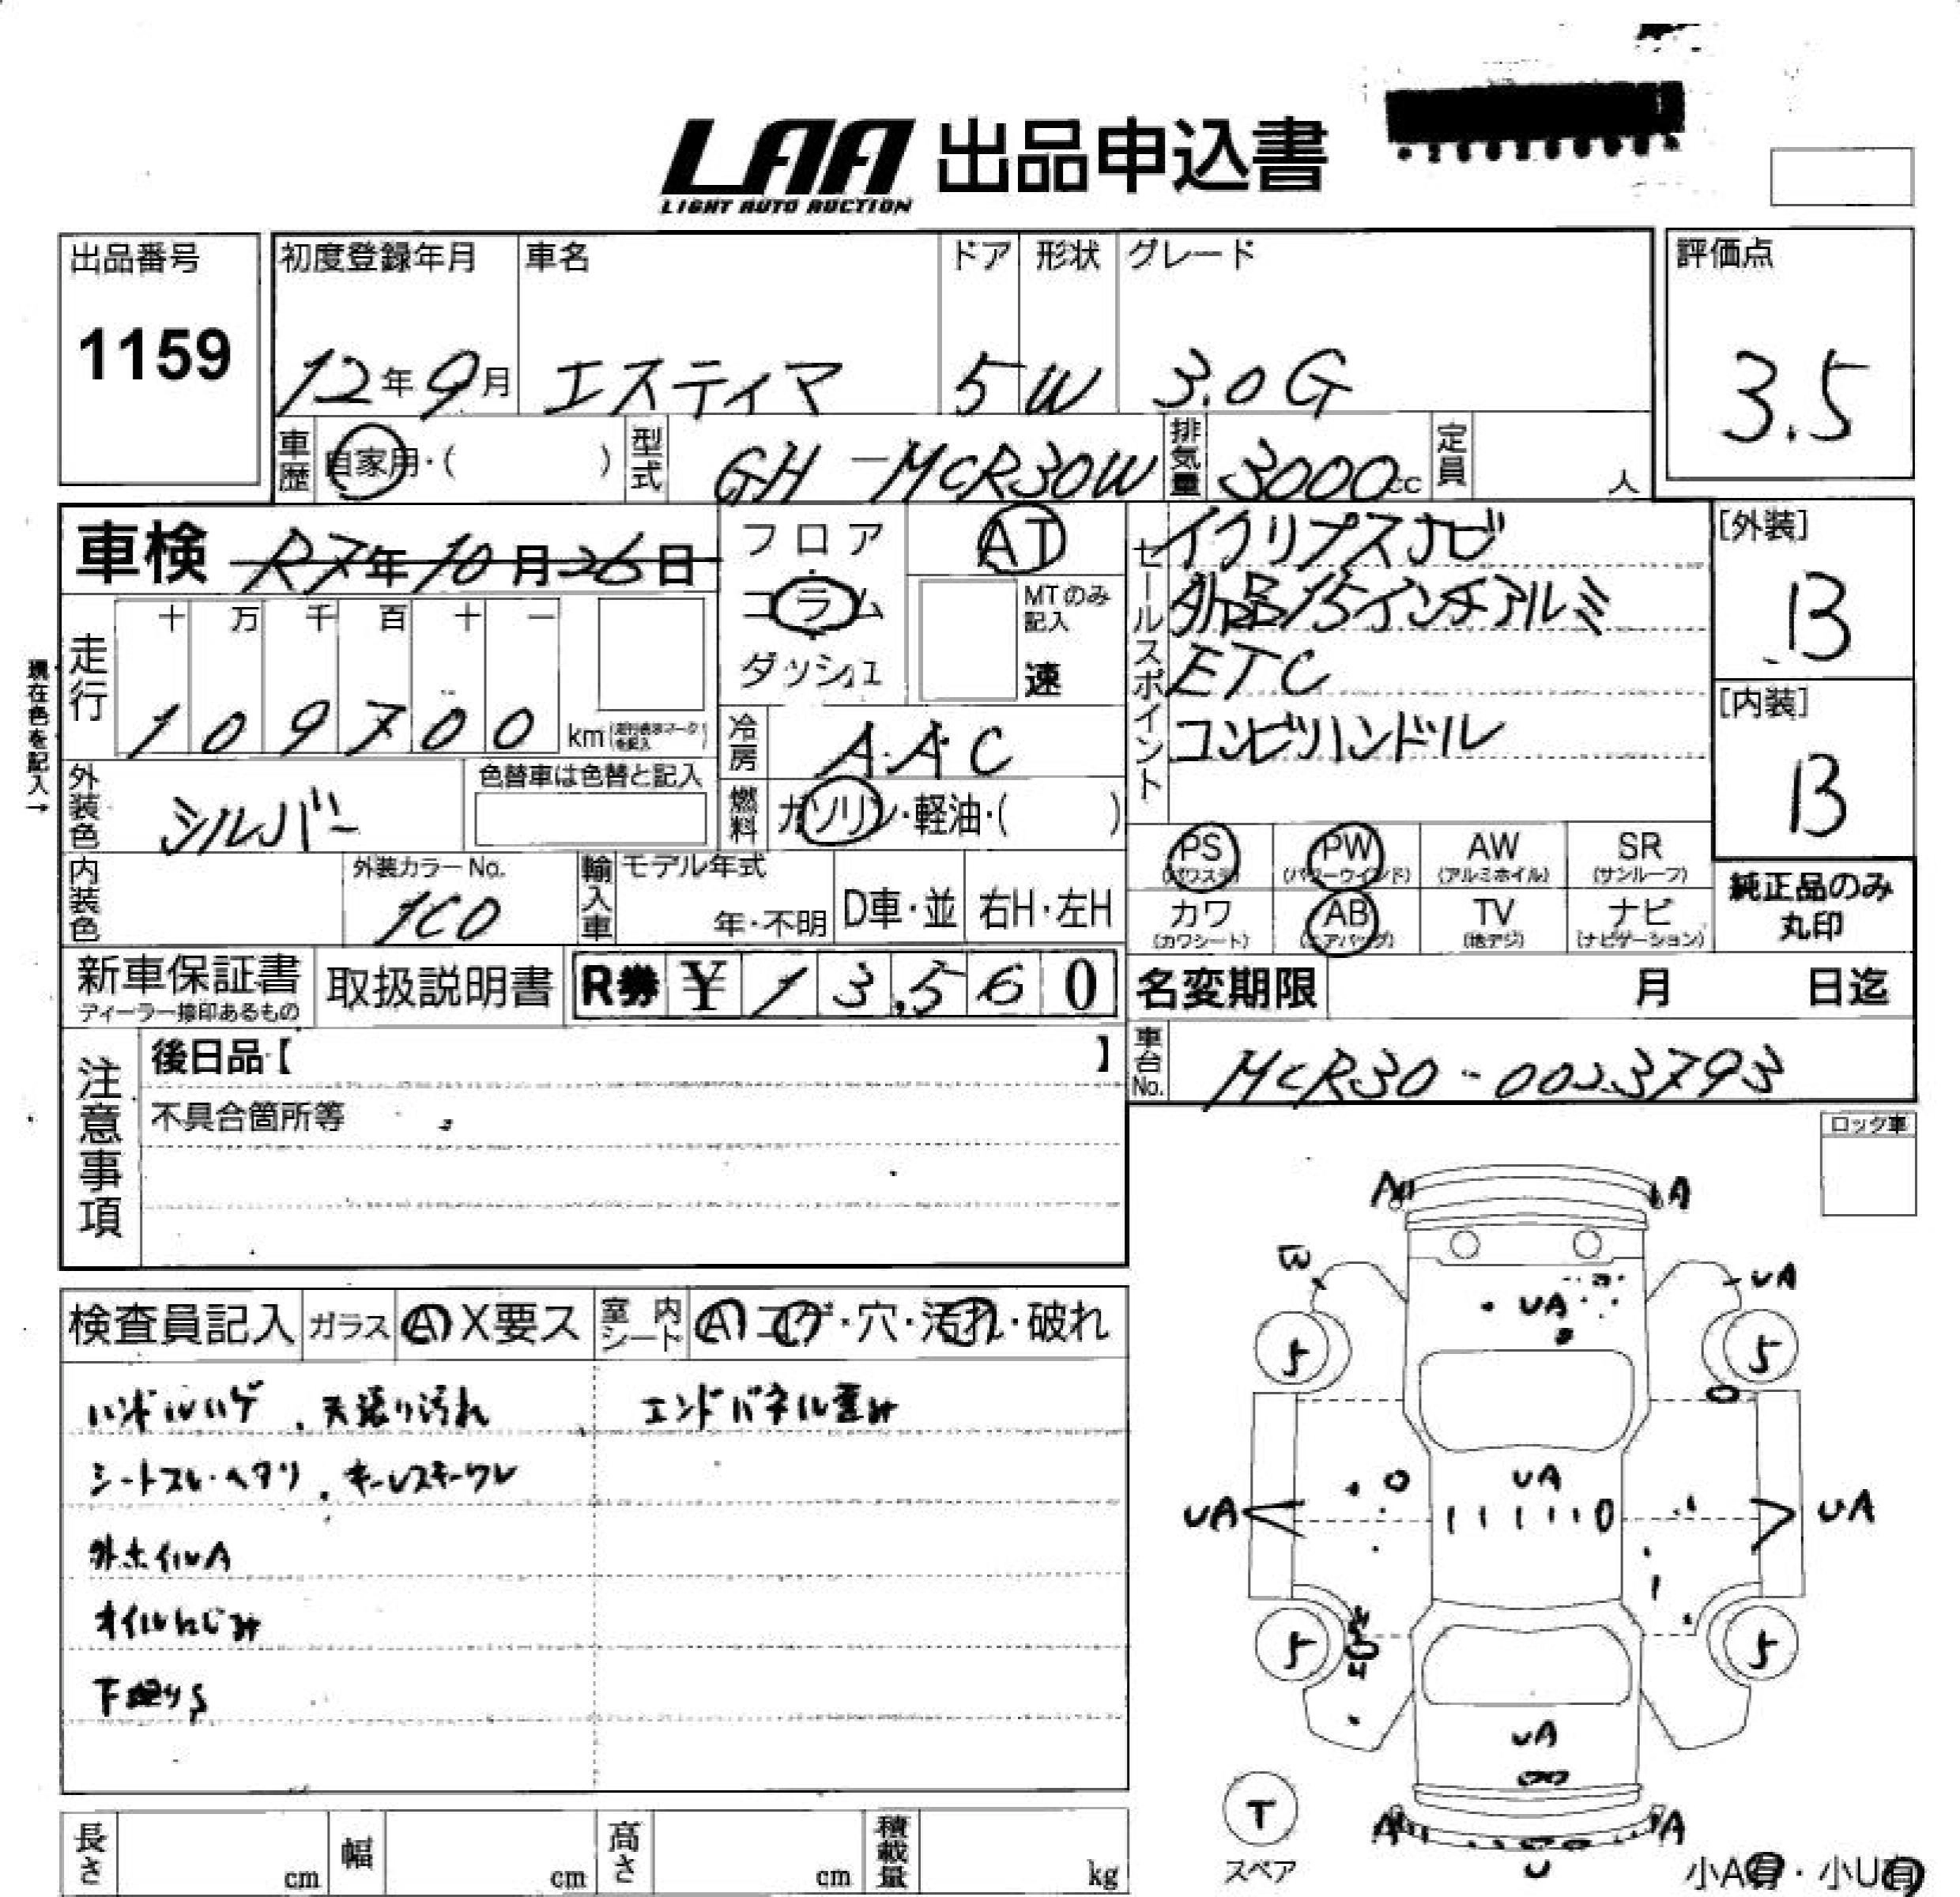 LAA 出品申込書
LIGHT AUTO AUCTION
出品番号
1159
初度登録年月
12年9月
車名
エスティマ
ドア
5
形状
W
グレード
3.0G
評価点
3.5
車歴
自家用・( )
型式
GH-MCR30W
排気量
3000cc
定員
人
車検 R7年10月26日
フロア
コラム
ダッシュ
AT
MTのみ記入
速
セールスポイント
イクリプスナビ
外品15インチアルミ
ETC
コンビハンドル
[外装]
B
[内装]
B
純正品のみ
丸印
現在色を記入→
走行
十 万 千 百 十 一
1 0 9 7 0 0 km
冷房
AAC
燃料
ガソリン・軽油・( )
外装色
シルバー
色替車は色替と記入
内装色
外装カラーNo.
1C0
輸入車
モデル年式
年・不明
D車・並
右H・左H
PS (パワステ)
PW (パワーウインド)
AW (アルミホイル)
SR (サンルーフ)
カワ (カワシート)
AB (エアバッグ)
TV (地デジ)
ナビ (ナビゲーション)
新車保証書
ディーラー捺印あるもの
取扱説明書
R券 ¥ 13,560
名変期限 月 日迄
車台No.
MCR30-0023793
注意事項
後日品【 】
不具合箇所等
ロック車
検査員記入
ガラス A X要ス
室内シート A コゲ・穴・汚れ・破れ
ハンドルハゲ、天張り汚れ
シートスレ・ヘタリ、キーレスキーワレ
外ホイルA
オイルにじみ
下廻りS
エンドパネル歪み
A A
W UA
UA
5 5
UA
UA UA
5 5
UA
T
スペア
A A
U
小A有・小U有
長さ cm
幅 cm
高さ cm
積載量 kg